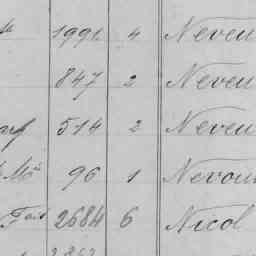 1991 4 Neveu
847 2 Neveu
514 2 Neveu
96 1 Nevou
Fois 2684 6 Nicol